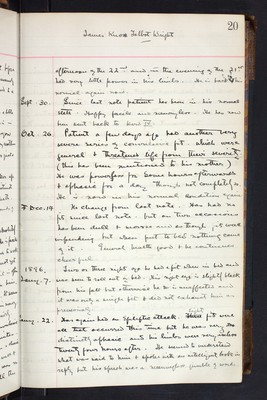 20
James Knox Talbot Wright
afternoon of the 22nd and in the evening of the 21st
had very little power in his limbs. He is back
normal again now.
Sept 30. Since last note patient has been in his normal
state. Happy, facile and nonsensical. He has now
been sent back to Ward
Oct. 26. Patient a few days ago had another very
severe series of convulsive fits which were
general & threatened life from their severity
(this has been mentioned to his mother)
He was powerless for some hours afterwards
& aphasic for a day though not completely so.
He is now in his normal condition again
Dec. 14. No change from last note. Has had no
fit since last note. but on two occasions
has been dull & morose and as though a fit were
impending but when put to bed nothing came
of it. General health good & he continues
cheerful
1886. Two or three nights ago he had a fit when in bed and
Jany. 7. was seen to roll out of bed. His right eye is slightly black
from his fall but otherwise he is unaffected and
it was only a single fit & did not exhaust him as
previously
Jany. 22. Has again had an Epileptic attack. slight fit were
all that occurred this time but he was very
distinctly aphasic and his limbs were very
twenty four hours after. He seemed to understand
what was said to him & spoke with an intelligent look in
reply but his speech was a meaningless jumble of words